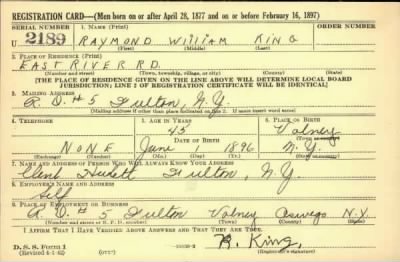 REGISTRATION CARD—(Men born on or after April 28, 1877 and on or before February 16, 1897)
SERIAL NUMBER 1. NAME (Print) ORDER NUMBER
U 2189 RAYMOND WILLIAM KING
(First) (Middle) (Last)
2. PLACE OF RESIDENCE (Print)
EAST RIVER RD.
(Number and street) (Town, township, village, or city) (County) (State)
[THE PLACE OF RESIDENCE GIVEN ON THE LINE ABOVE WILL DETERMINE LOCAL BOARD
JURISDICTION; LINE 2 OF REGISTRATION CERTIFICATE WILL BE IDENTICAL]
3. MAILING ADDRESS
R.D. #5 Fulton, N.Y.
(Mailing address if other than place indicated on line 2. If same insert word same)
4. TELEPHONE 5. AGE IN YEARS 6. PLACE OF BIRTH
45 Volney
DATE OF BIRTH (Town or county)
NONE June 1 1896 N.Y.
(Exchange) (Number) (Mo.) (Day) (Yr.) (State or country)
7. NAME AND ADDRESS OF PERSON WHO WILL ALWAYS KNOW YOUR ADDRESS
Fulton, N.Y.
8. EMPLOYER'S NAME AND ADDRESS
Self
9. PLACE OF EMPLOYMENT OR BUSINESS
R.D. #5 Fulton Volney Oswego N.Y.
(Number and street or R. F. D. number) (Town) (County) (State)
I AFFIRM THAT I HAVE VERIFIED ABOVE ANSWERS AND THAT THEY ARE TRUE.
D. S. S. Form 1
(Revised 4-1-42) (over)
R. King
(Registrant's signature)